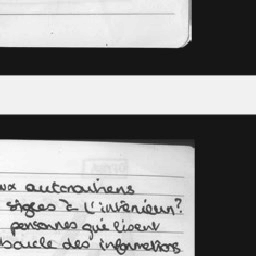 aux autrouhiens
sièges à l'intérieur?
personnes qui lisent
boucle des informations